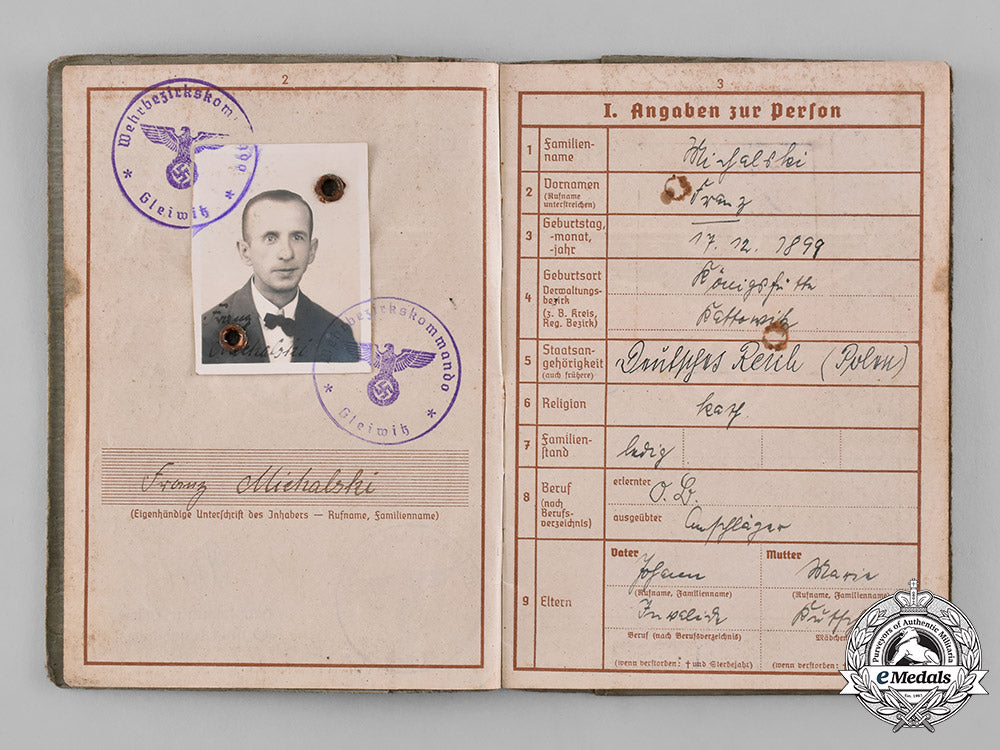 2
Wehrbezirkskommando
Gleiwitz
Franz
Michalski
Wehrbezirkskommando
Gleiwitz
Franz Michalski
(Eigenhändige Unterschrift des Inhabers — Rufname, Familienname)
3
I. Angaben zur Person
1 Familien-
name
Michalski
2 Vornamen
(Rufname
unterstreichen)
Franz
3 Geburtstag,
-monat,
-jahr
17. 12. 1899
4 Geburtsort
Verwaltungs-
bezirk
(z. B. Kreis,
Reg. Bezirk)
Königshütte
Kattowitz
5 Staatsan-
gehörigkeit
(auch frühere)
Deutsches Reich (Polen)
6 Religion
kath.
7 Familien-
stand
ledig
8 Beruf
(nach
Berufs-
verzeichnis)
erlernter
o. B.
ausgeübter
Anschläger
9 Eltern
Vater
Johann
(Rufname, Familienname)
Invalide
Beruf (nach Berufsverzeichnis)
(wenn verstorben: † und Sterbejahr)
Mutter
Marie
(Rufname, Familienname)
Mädchen
(wenn verstorben:
Purveyors of Authentic Militaria
eMedals